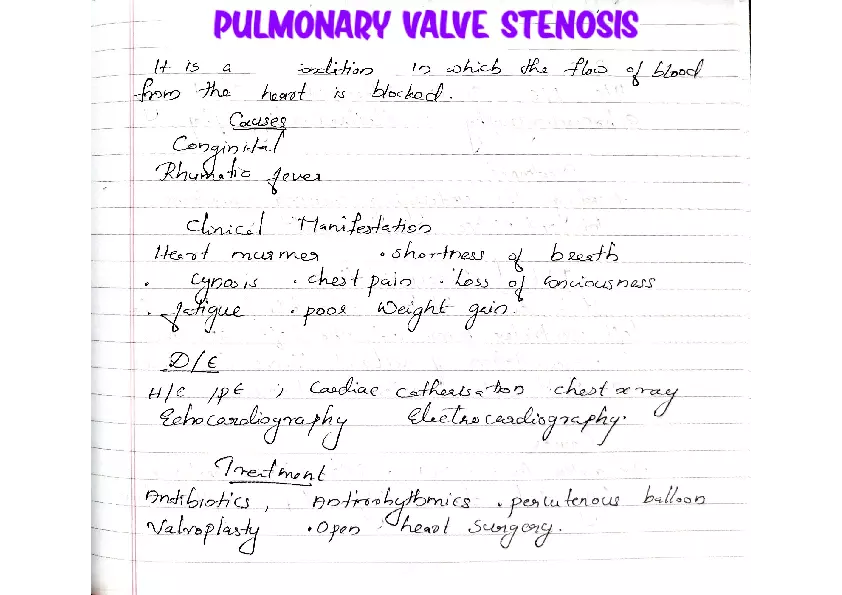 PULMONARY VALVE STENOSIS
It is a condition in which the flow of blood
from the heart is blocked.
Causes
Conginital
Rhumatic fever
Clinical Manifestation
Heart murmer • shortness of breath
• Cynosis • chest pain • Loss of consciousness
• fatigue • poor weight gain.
D/E
H/C /PE , Cardiac catherisation chest x ray
Echocardiography Electrocardiography.
Treatment
Antibiotics, Antirrhythmics • percutenous balloon
Valvroplasty • Open heart surgery.